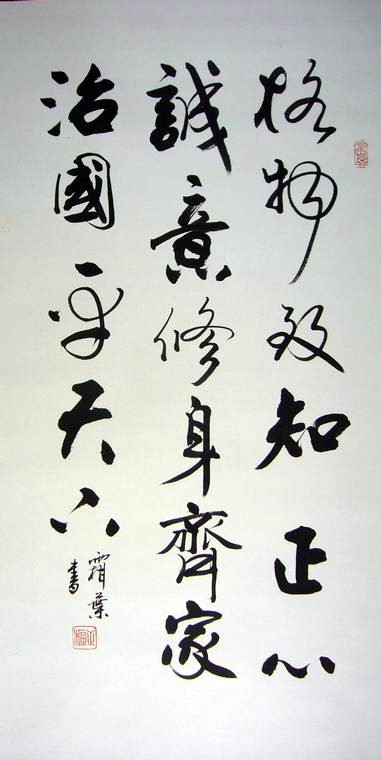 格物致知正心
誠意修身齊家
治國平天下
霜葉
書